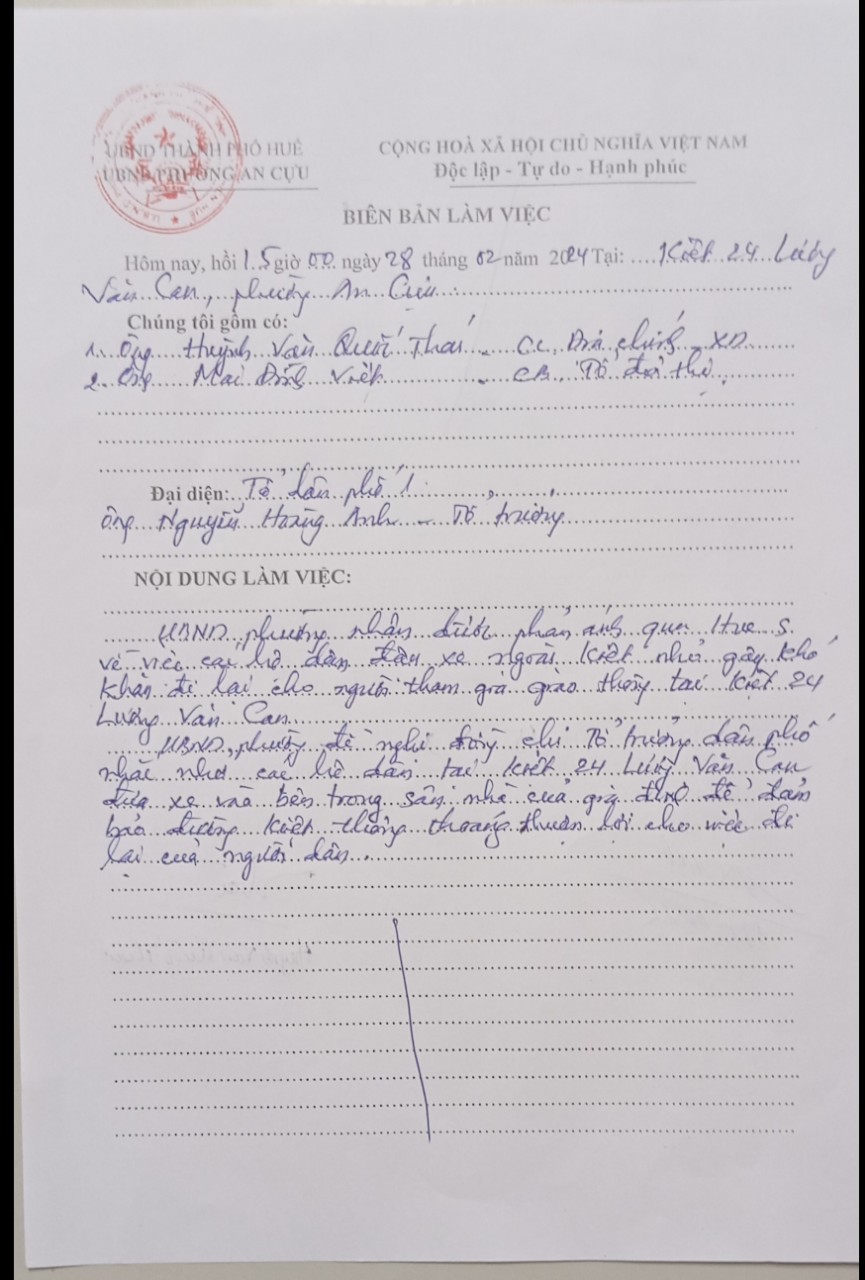 UBND THÀNH PHỐ HUẾ
UBND PHƯỜNG AN CỰU
CỘNG HOÀ XÃ HỘI CHỦ NGHĨA VIỆT NAM
Độc lập - Tự do - Hạnh phúc
BIÊN BẢN LÀM VIỆC
Hôm nay, hồi 15 giờ 00 ngày 28 tháng 02 năm 2024 Tại: Kiệt 24 Lương
Văn Can, phường An Cựu
Chúng tôi gồm có:
1. Ông Huỳnh Văn Quốc Thái - CC, Địa chính - XD
2. Ông Mai Đình Việt - CB, Tổ đô thị
Đại diện: Tổ dân phố 1
Ông Nguyễn Hoàng Anh - Tổ trưởng
NỘI DUNG LÀM VIỆC:
UBND phường nhận được phản ánh qua Hue S
về việc các hộ dân đậu xe ngoài kiệt nhỏ gây khó
khăn đi lại cho người tham gia giao thông tại kiệt 24
Lương Văn Can
UBND phường đề nghị đồng chí Tổ trưởng dân phố
nhắc nhở các hộ dân tại kiệt 24 Lương Văn Can
đưa xe vào bên trong sân nhà của gia đình để đảm
bảo đường kiệt thông thoáng thuận lợi cho việc đi
lại của người dân.